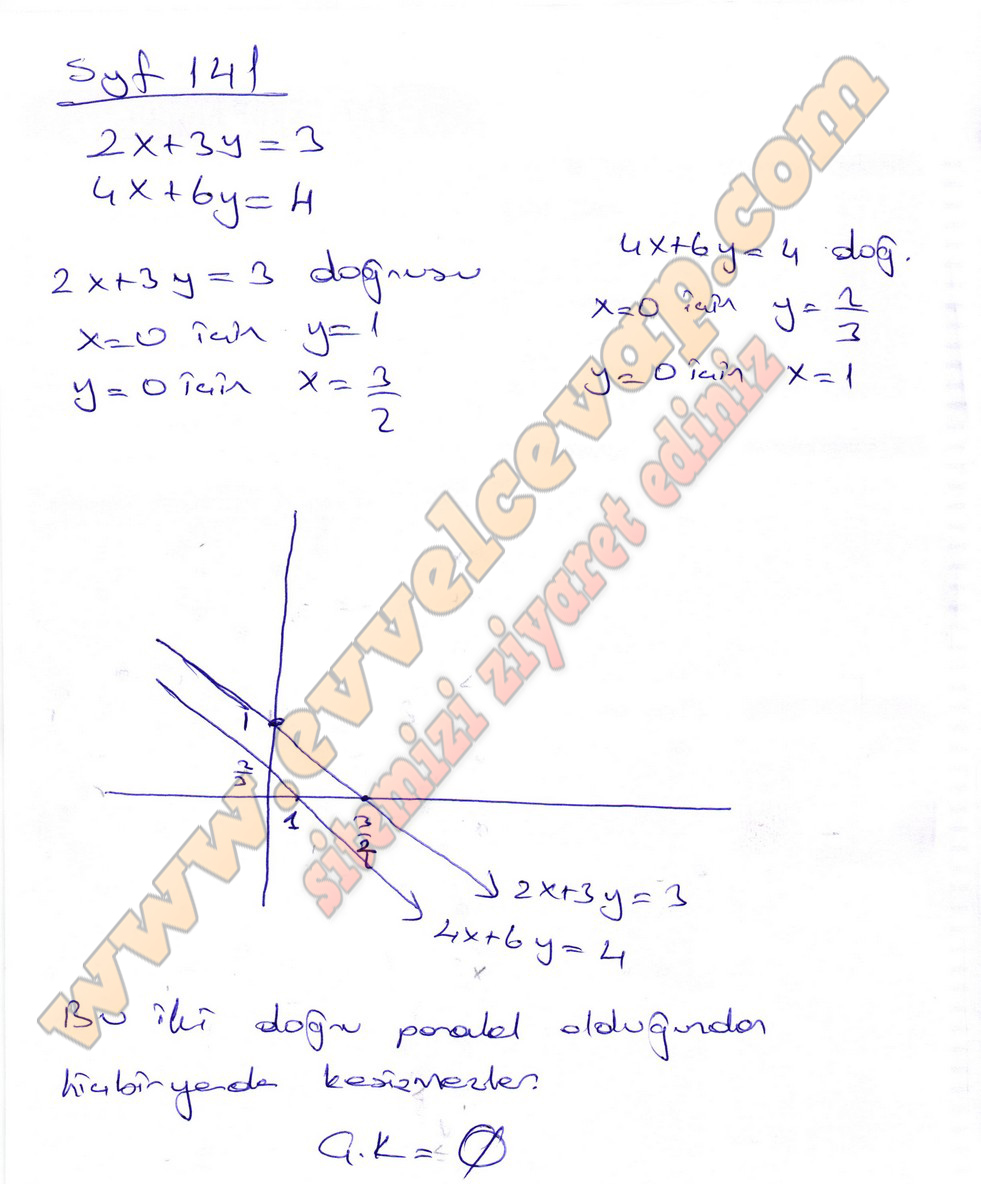 Syf 141
2x+3y=3
4x+6y=4
2x+3y=3 doğrusu
x=0 için y=1
y=0 için x=3/2
4x+6y=4 doğ.
x=0 için y=2/3
y=0 için x=1
1
2/3
1
3/2
2x+3y=3
4x+6y=4
Bu iki doğru paralel olduğundan
hiçbiryerde kesişmezler.
Ç.K=∅
www.evvelcevap.com
sitemizi ziyaret ediniz